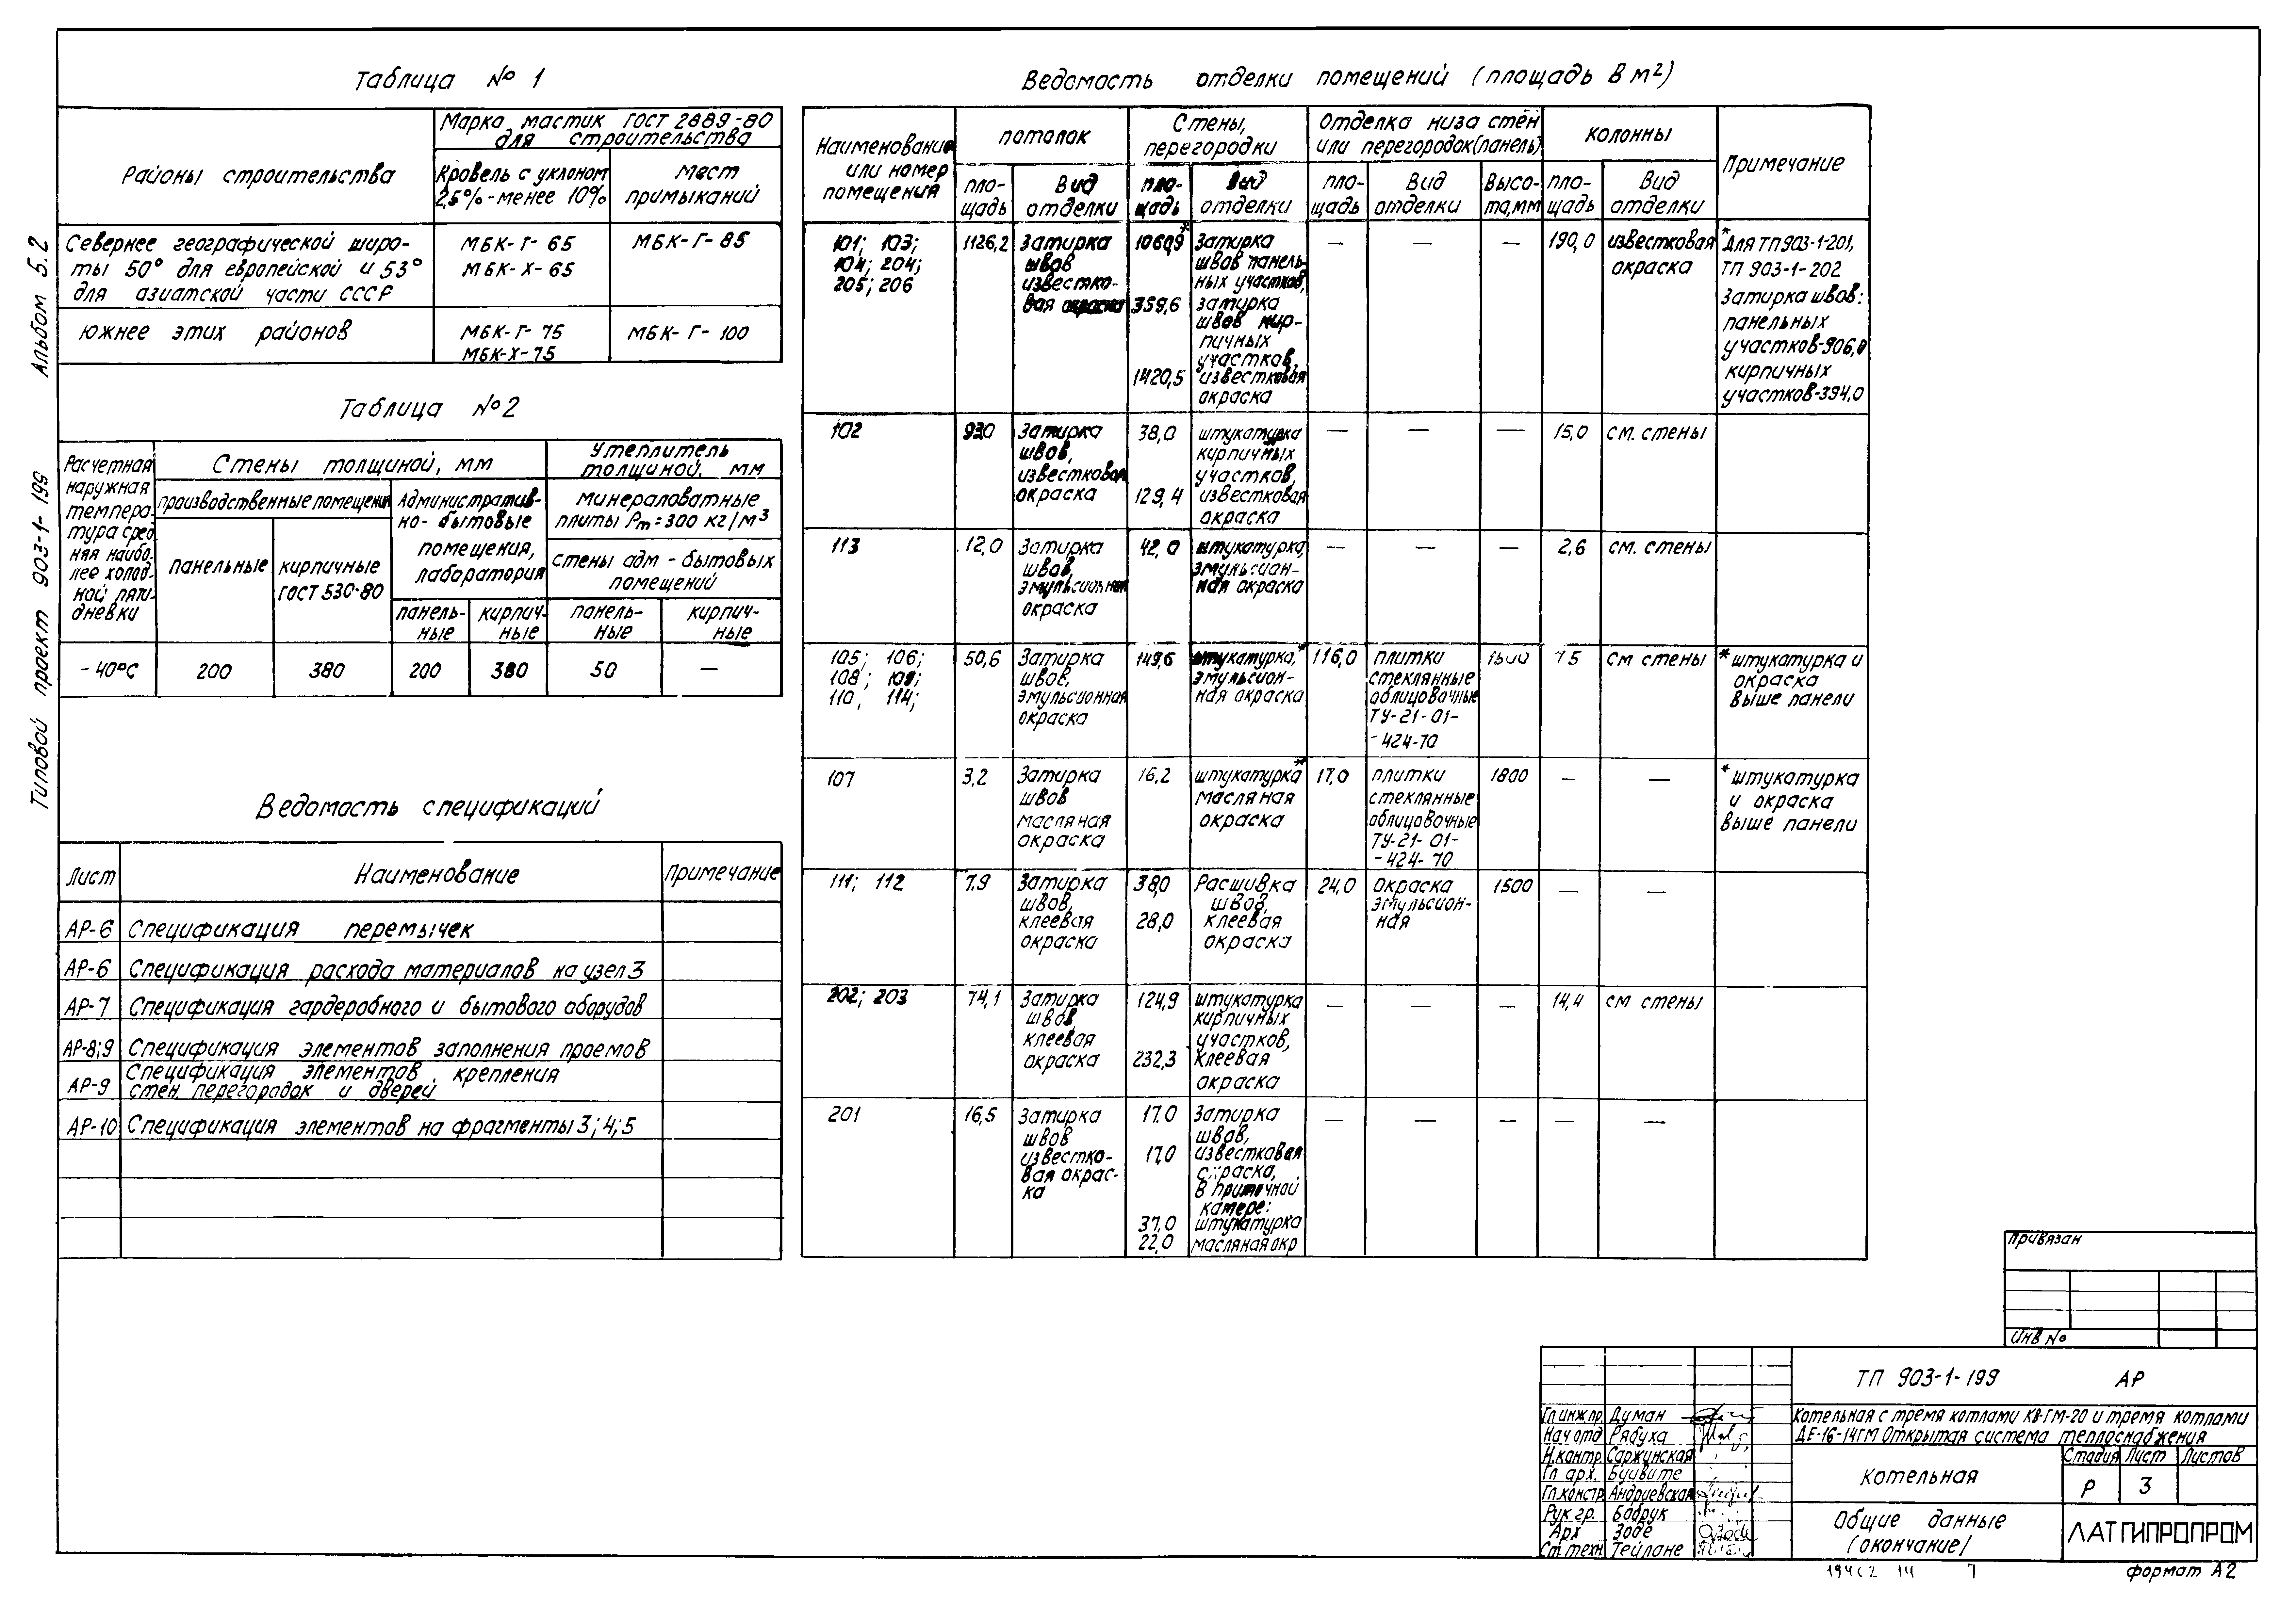 Альбом 5.2
Типовой проект 903-1-199
Таблица №1
Районы строительства
Марка мастик ГОСТ 2889-80
для строительства
Кровель с уклоном
2,5%-менее 10%
мест
примыканий
Севернее географической широ-
ты 50° для европейской и 53°
для азиатской части СССР
МБК-Г-65
МБК-Х-65
МБК-Г-85
южнее этих районов
МБК-Г-75
МБК-Х-75
МБК-Г-100
Таблица №2
Расчетная
наружная
темпера-
тура сред
няя наибо-
лее холод-
ной пяти-
дневки
Стены толщиной, мм
производственные помещения
панельные
кирпичные
ГОСТ 530-80
Административ-
но-бытовые
помещения,
лаборатория
панель-
ные
кирпич-
ные
Утеплитель
толщиной, мм
минераловатные
плиты ρm=300 кг/м³
стены адм-бытовых
помещений
панель-
ные
кирпич-
ные
-40°С 200 380 200 380 50 —
Ведомость спецификаций
Лист Наименование Примечание
АР-6 Спецификация перемычек
АР-6 Спецификация расхода материалов на узел 3
АР-7 Спецификация гардеробного и бытового оборудов
АР-8;9 Спецификация элементов заполнения проемов
АР-9 Спецификация элементов крепления
стен перегородок и дверей
АР-10 Спецификация элементов на фрагменты 3; 4; 5
Ведомость отделки помещений (площадь в м²)
Наименование
или номер
помещения
потолок
пло-
щадь
Вид
отделки
Стены,
перегородки
пло-
щадь
Вид
отделки
Отделка низа стен
или перегородок (панель)
пло-
щадь
Вид
отделки
Высо-
та, мм
колонны
пло-
щадь
Вид
отделки
Примечание
101; 103;
104; 204;
205; 206
1126,2
Затирка
швов
известко-
вая окраска
1060,9*
Затирка
швов панель-
ных участков,
359,6
затирка
швов кир-
пичных
участков,
1420,5
известковая
окраска
— — —
190,0
известковая
окраска
*Для ТП 903-1-201,
ТП 903-1-202
Затирка швов:
панельных
участков-906,0
кирпичных
участков-394,0
102
93,0
Затирка
швов,
известковая
окраска
38,0
штукатурка
кирпичных
участков,
129,4
известковая
окраска
— — —
15,0
см. стены
113
12,0
Затирка
швов,
эмульсионная
окраска
42,0
штукатурка,
эмульсион-
ная окраска
— — —
2,6
см. стены
105; 106;
108; 109;
110, 114;
50,6
Затирка
швов,
эмульсионная
окраска
149,6
штукатурка,*
эмульсион-
ная окраска
116,0
плитки
стеклянные
облицовочные
ТУ-21-01-
-424-70
7,5
см стены
*штукатурка и
окраска
выше панели
107
3,2
Затирка
швов
масляная
окраска
16,2
штукатурка*
масляная
окраска
17,0
плитки
стеклянные
облицовочные
ТУ-21-01-
-424-70
1800
— —
*штукатурка
и окраска
выше панели
111; 112
7.9
Затирка
швов,
клеевая
окраска
38,0
Расшивка
швов,
28,0
клеевая
окраска
24,0
окраска
эмульсион-
ная
1500
— —
202; 203
74,1
Затирка
швов,
клеевая
окраска
124,9
штукатурка
кирпичных
участков,
232,3
клеевая
окраска
— — —
14,4
см стены
201
16,5
Затирка
швов
известко-
вая окрас-
ка
17.0
Затирка
швов,
17,0
известковая
окраска,
В приточной
камере:
37.0
штукатурка
22,0
масляная окр
— — — — —
Привязан
Инв №
ТП 903-1-199 АР
Котельная с тремя котлами КВ-ГМ-20 и тремя котлами
ДЕ-16-14ГМ Открытая система теплоснабжения
Гл инж пр. Думан
Нач отд Рябуха
Н. контр. Саржинская
Гл арх. Буивите
Гл. констр. Андриевская
Рук гр. Бобрук
Арх Зоде
Ст. техн. Тейлане
котельная
Стадия Лист Листов
Р 3
Общие данные
(окончание)
ЛАТГИПРОПРОМ
7
формат А2